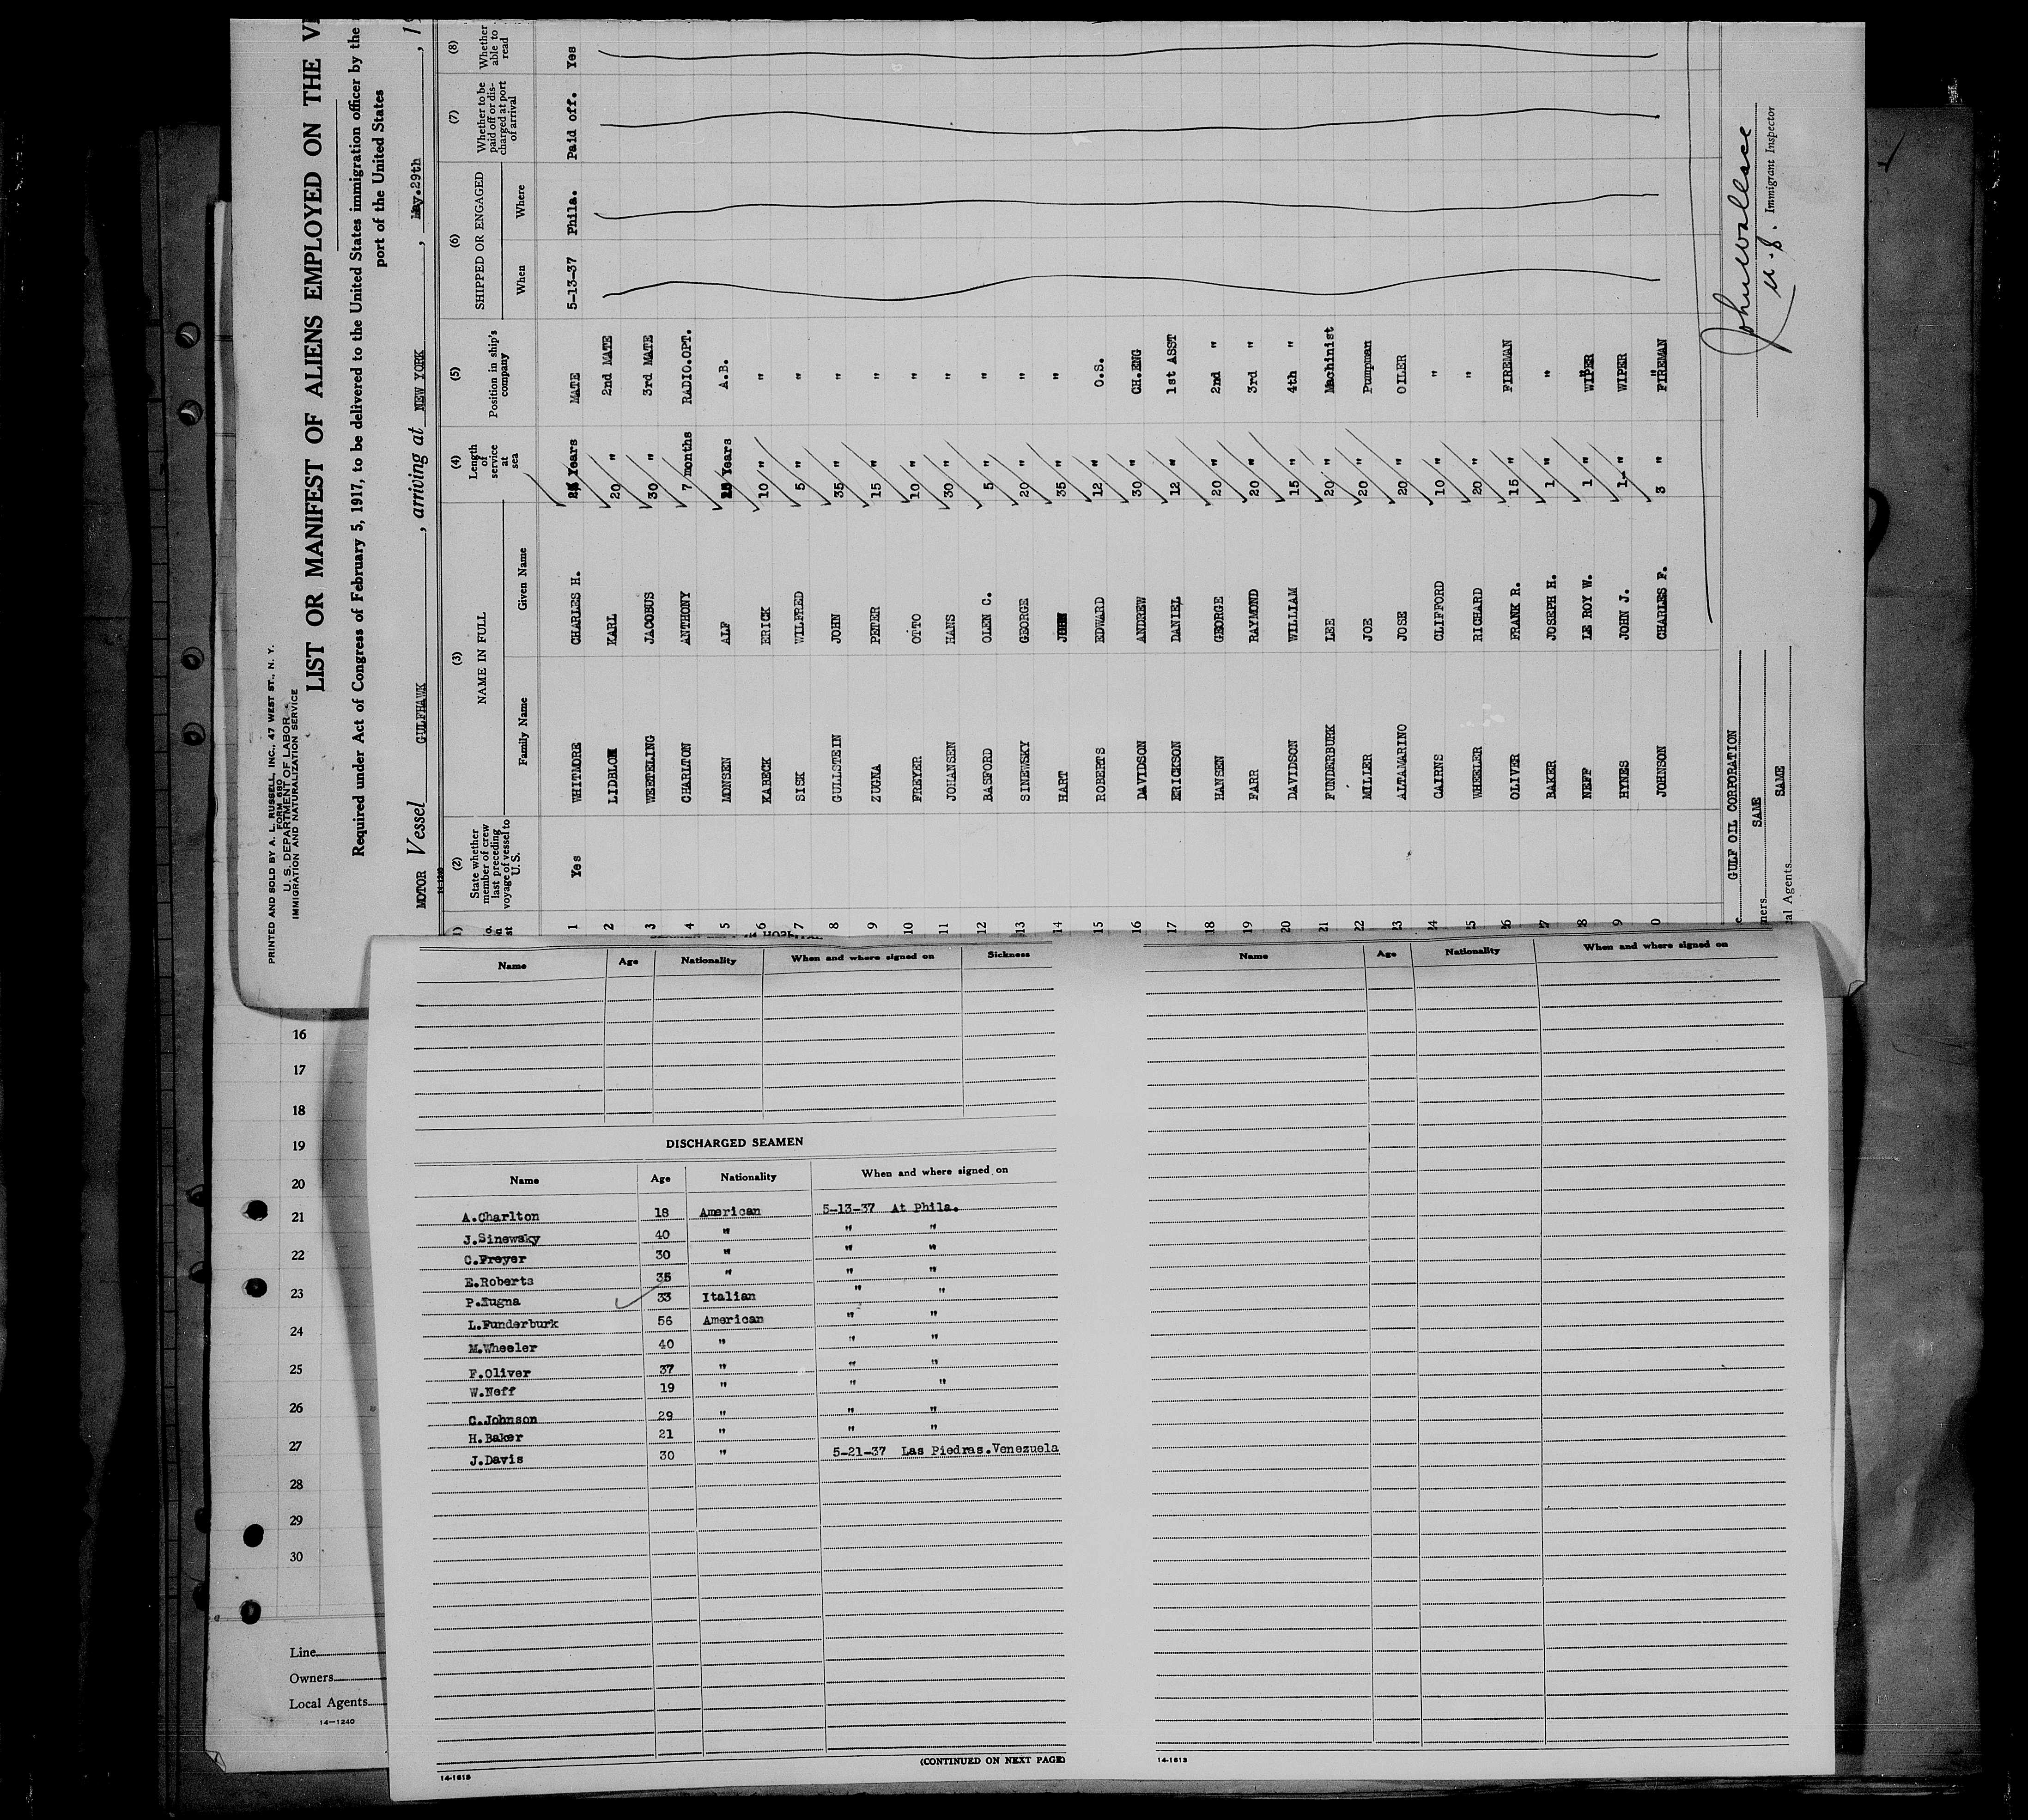 PRINTED AND SOLD BY A. L. RUSSELL, INC., 47 WEST ST., N. Y.
FORM 680
U. S. DEPARTMENT OF LABOR
IMMIGRATION AND NATURALIZATION SERVICE
LIST OR MANIFEST OF ALIENS EMPLOYED ON THE
Required under Act of Congress of February 5, 1917, to be delivered to the United States immigration officer by the
port of the United States
MOTOR Vessel GULFHAWK, arriving at NEW YORK, May.29th, 19
14-1240
(2) (3) (4) (5) (6) (7) (8)
State whether member of crew last preceding voyage of vessel to U. S. NAME IN FULL Length of service at sea Position in ship's company SHIPPED OR ENGAGED Whether to be paid off or discharged at port of arrival Whether able to read
Family Name Given Name When Where
1 Yes WHITMORE CHARLES H. Years MATE 5-13-37 Phila. Paid off. Yes
2 LIDBLOM KARL 20 " 2nd MATE
3 WEETELING JACOBUS 30 " 3rd MATE
4 CHARLTON ANTHONY 7 months RADIO.OPT.
5 MONSEN ALF Years A.B.
6 KABECK ERICK 10 " "
7 SISK WILFRED 5 " "
8 GULLSTEIN JOHN 35 " "
9 ZUGNA PETER 15 " "
10 FREYER OTTO 10 " "
11 JOHANSEN HANS 30 " "
12 BASFORD OLEN C. 5 " "
13 SINEWSKY GEORGE 20 " "
14 HART JOHN 35 " "
15 ROBERTS EDWARD 12 " O.S.
16 DAVIDSON ANDREW 30 " CH.ENG
17 ERICKSON DANIEL 12 " 1st ASST
18 HANSEN GEORGE 20 " 2nd "
19 FARR RAYMOND 20 " 3rd "
20 DAVIDSON WILLIAM 15 " 4th "
21 FUNDERBURK LEE 20 " Machinist
22 MILLER JOE 20 " Pumpman
23 ALTAMARINO JOSE 20 " OILER
24 CAIRNS CLIFFORD 10 " "
25 WHEELER RICHARD 20 " "
26 OLIVER FRANK R. 15 " FIREMAN
27 BAKER JOSEPH H. 1 " "
28 NEFF LE ROY W. 1 " WIPER
29 HYNES JOHN J. 1 " WIPER
0 JOHNSON CHARLES F. 3 " FIREMAN
GULF OIL CORPORATION
SAME
SAME
al Agents
John Wallace
U. S. Immigrant Inspector
Name Age Nationality When and where signed on Sickness
DISCHARGED SEAMEN
Name Age Nationality When and where signed on
A.Charlton 18 American 5-13-37 At Phila.
J.Sinewsky 40 " " "
C.Freyer 30 " " "
E.Roberts 35 " " "
P.Zugna 33 Italian " "
L.Funderburk 56 American " "
M.Wheeler 40 " " "
F.Oliver 37 " " "
W.Neff 19 " " "
C.Johnson 29 " " "
H.Baker 21 " " "
J.Davis 30 " 5-21-37 Las Piedras.Venezuela
(CONTINUED ON NEXT PAGE)
14-1613
Name Age Nationality When and where signed on
14-1613
16
17
18
19
20
21
22
23
24
25
26
27
28
29
30
Line
Owners
Local Agents
14-1240